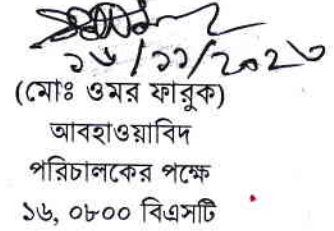 ১৬/১১/২০২৩
(মোঃ ওমর ফারুক)
আবহাওয়াবিদ
পরিচালকের পক্ষে
১৬, ০৮০০ বিএসটি